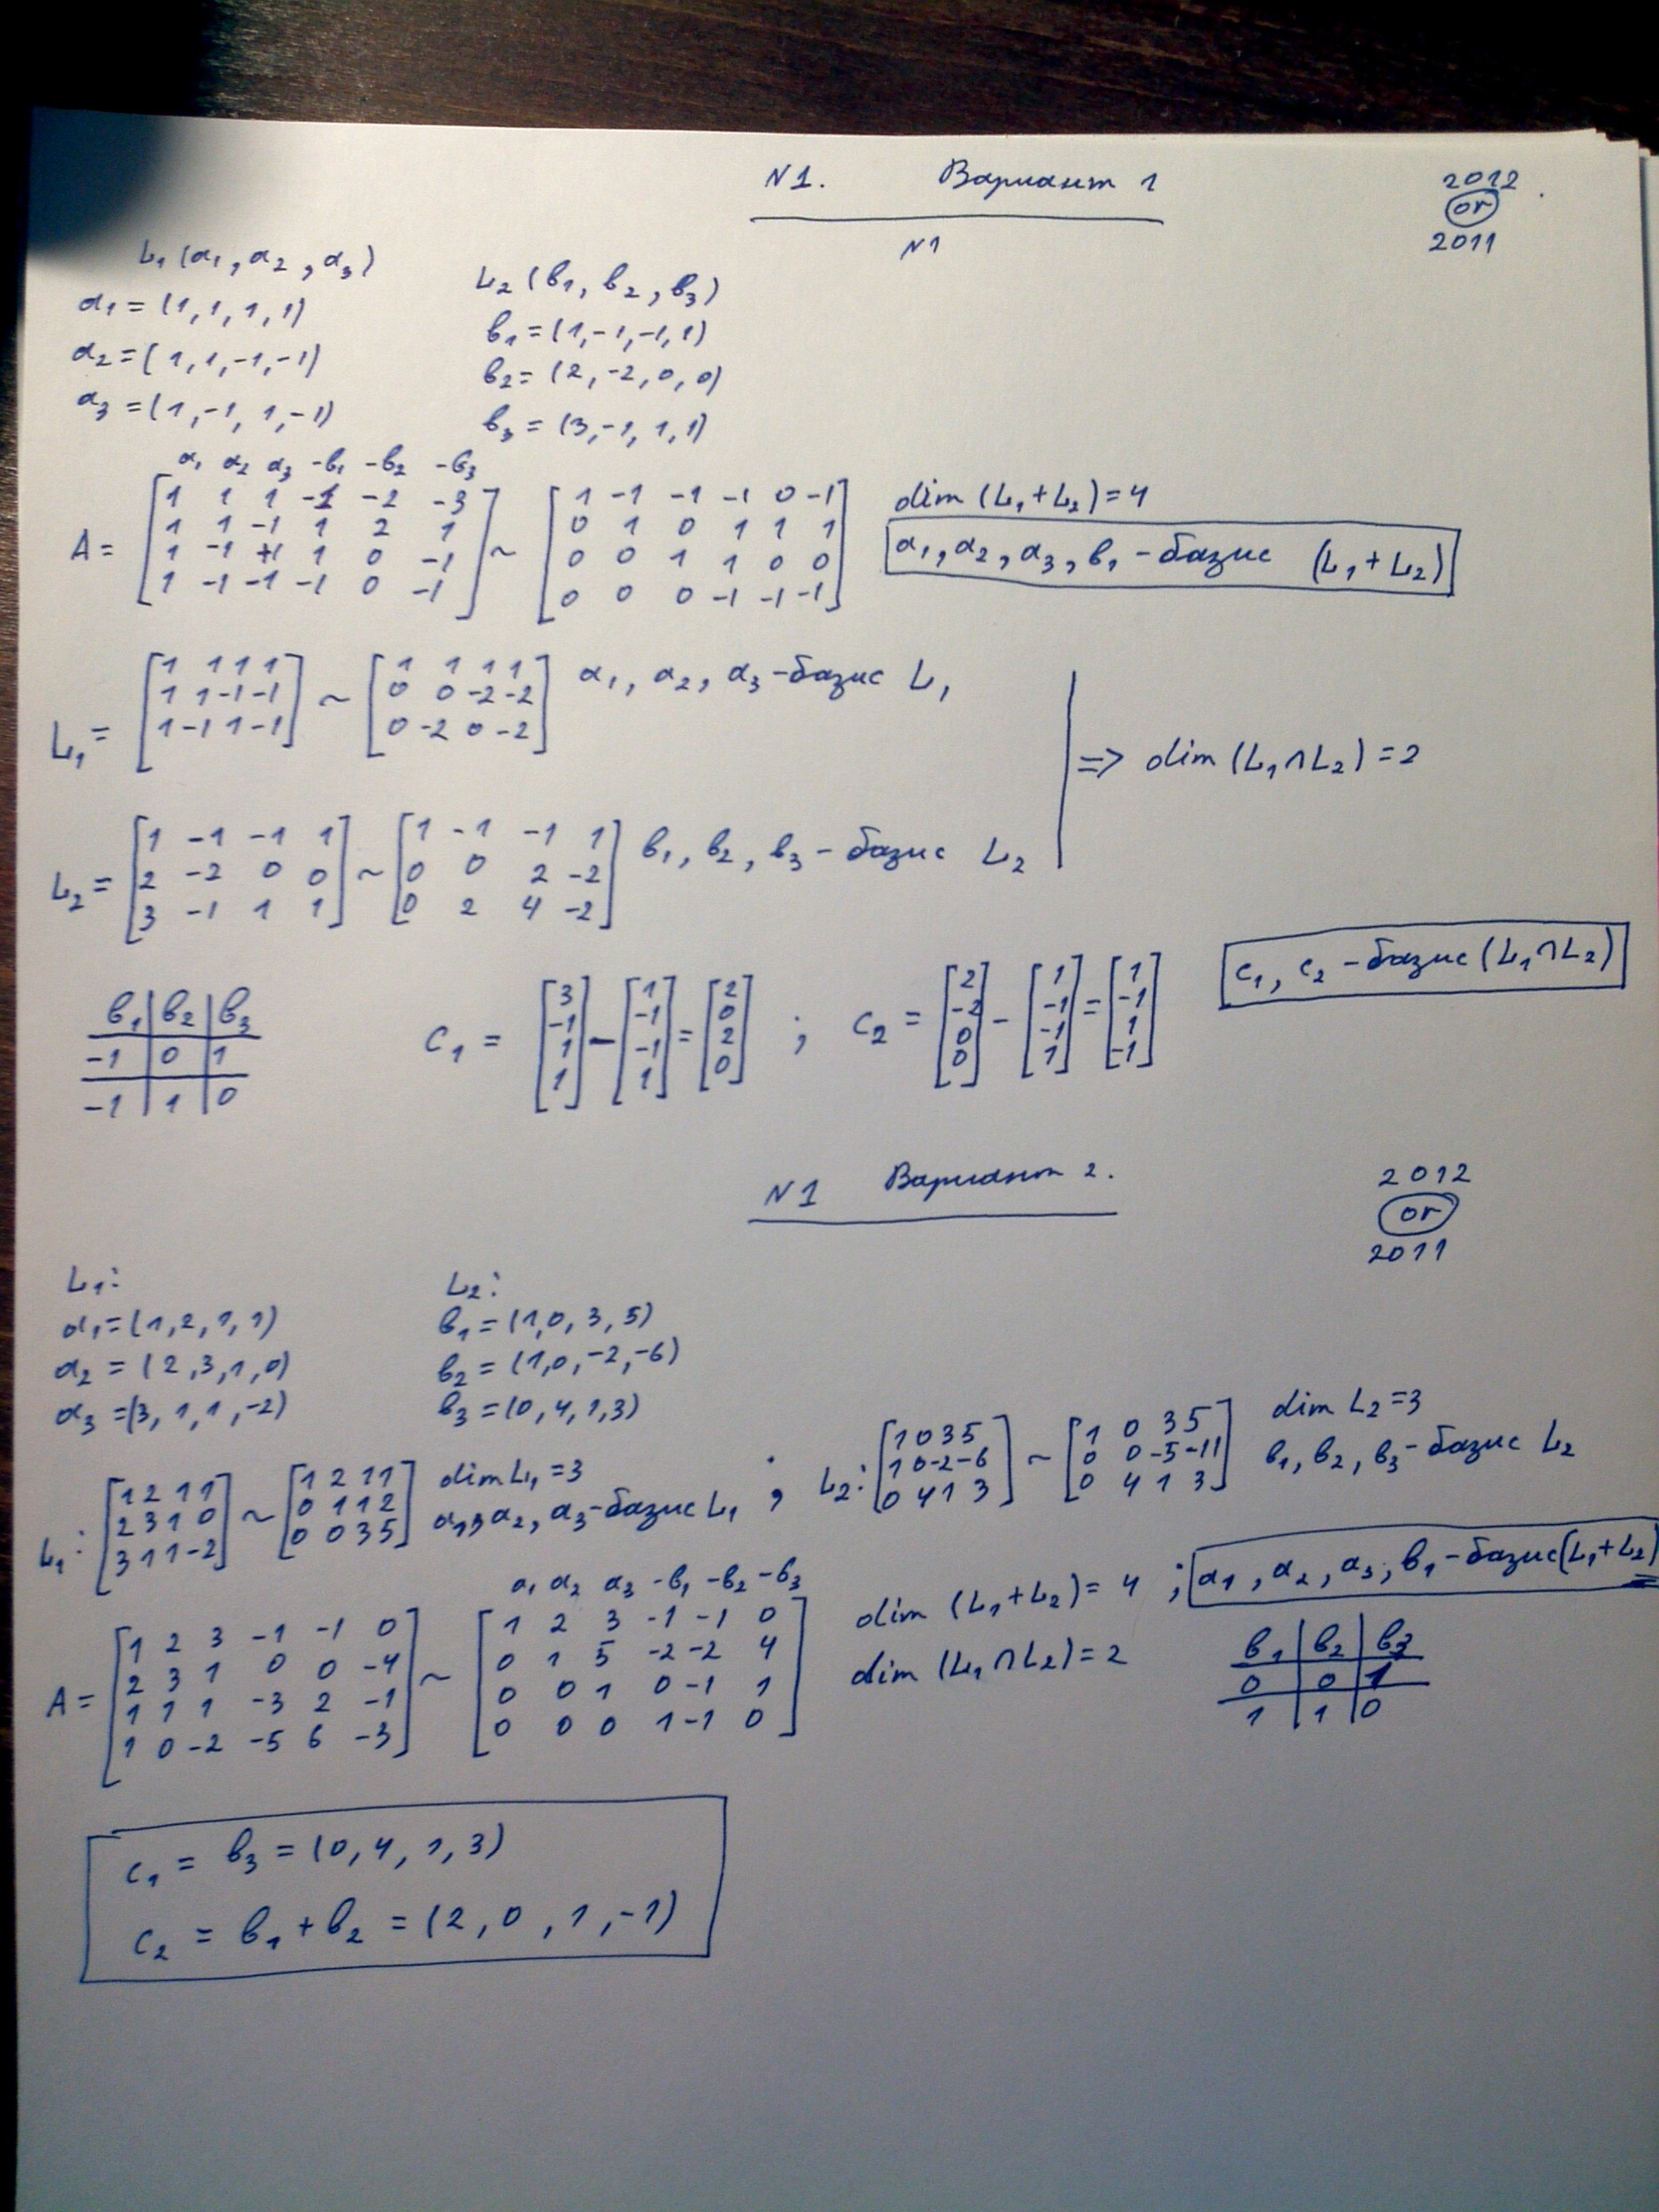 N1. Вариант 1
2012
or
2011
N1
L₁ (α₁, α₂, α₃)
α₁ = (1, 1, 1, 1)
α₂ = (1, 1, -1, -1)
α₃ = (1, -1, 1, -1)
L₂ (b₁, b₂, b₃)
b₁ = (1, -1, -1, 1)
b₂ = (2, -2, 0, 0)
b₃ = (3, -1, 1, 1)
α₁ α₂ α₃ -b₁ -b₂ -b₃
A =
1 1 1 -1 -2 -3
1 1 -1 1 2 1
1 -1 +1 1 0 -1
1 -1 -1 -1 0 -1
~
1 -1 -1 -1 0 -1
0 1 0 1 1 1
0 0 1 1 0 0
0 0 0 -1 -1 -1
dim (L₁+L₂) = 4
α₁, α₂, α₃, b₁ - базис (L₁+L₂)
L₁ =
1 1 1 1
1 1 -1 -1
1 -1 1 -1
~
1 1 1 1
0 0 -2 -2
0 -2 0 -2
α₁, α₂, α₃ - базис L₁
L₂ =
1 -1 -1 1
2 -2 0 0
3 -1 1 1
~
1 -1 -1 1
0 0 2 -2
0 2 4 -2
b₁, b₂, b₃ - базис L₂
=> dim (L₁∩L₂) = 2
b₁ | b₂ | b₃
-1 | 0 | 1
-1 | 1 | 0
c₁ = [3 -1 1 1] - [1 -1 -1 1] = [2 0 2 0] ; c₂ = [2 -2 0 0] - [1 -1 -1 1] = [1 -1 1 -1]
c₁, c₂ - базис (L₁∩L₂)
N1 Вариант 2.
2012
or
2011
L₁:
α₁ = (1, 2, 1, 1)
α₂ = (2, 3, 1, 0)
α₃ = (3, 1, 1, -2)
L₂:
b₁ = (1, 0, 3, 5)
b₂ = (1, 0, -2, -6)
b₃ = (0, 4, 1, 3)
L₁:
1 2 1 1
2 3 1 0
3 1 1 -2
~
1 2 1 1
0 1 1 2
0 0 3 5
dim L₁ = 3
α₁, α₂, α₃ - базис L₁ ;
L₂:
1 0 3 5
1 0 -2 -6
0 4 1 3
~
1 0 3 5
0 0 -5 -11
0 4 1 3
dim L₂ = 3
b₁, b₂, b₃ - базис L₂
α₁ α₂ α₃ -b₁ -b₂ -b₃
A =
1 2 3 -1 -1 0
2 3 1 0 0 -4
1 1 1 -3 2 -1
1 0 -2 -5 6 -3
~
1 2 3 -1 -1 0
0 1 5 -2 -2 4
0 0 1 0 -1 1
0 0 0 1 -1 0
dim (L₁+L₂) = 4 ; α₁, α₂, α₃, b₁ - базис (L₁+L₂)
dim (L₁∩L₂) = 2
b₁ | b₂ | b₃
0 | 0 | 1
1 | 1 | 0
c₁ = b₃ = (0, 4, 1, 3)
c₂ = b₁ + b₂ = (2, 0, 1, -1)